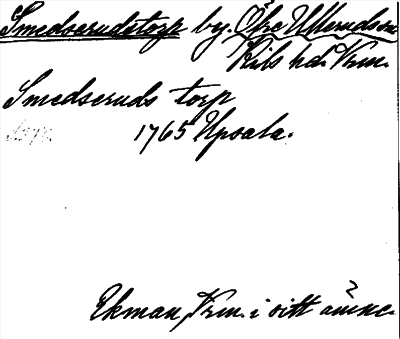 Smedserudstorp by. Ö. Ullerud sn
Kils hd. Vrm.
Smedseruds torp
1765 Upsala.
Ekman, Vrm. i sitt ämne.